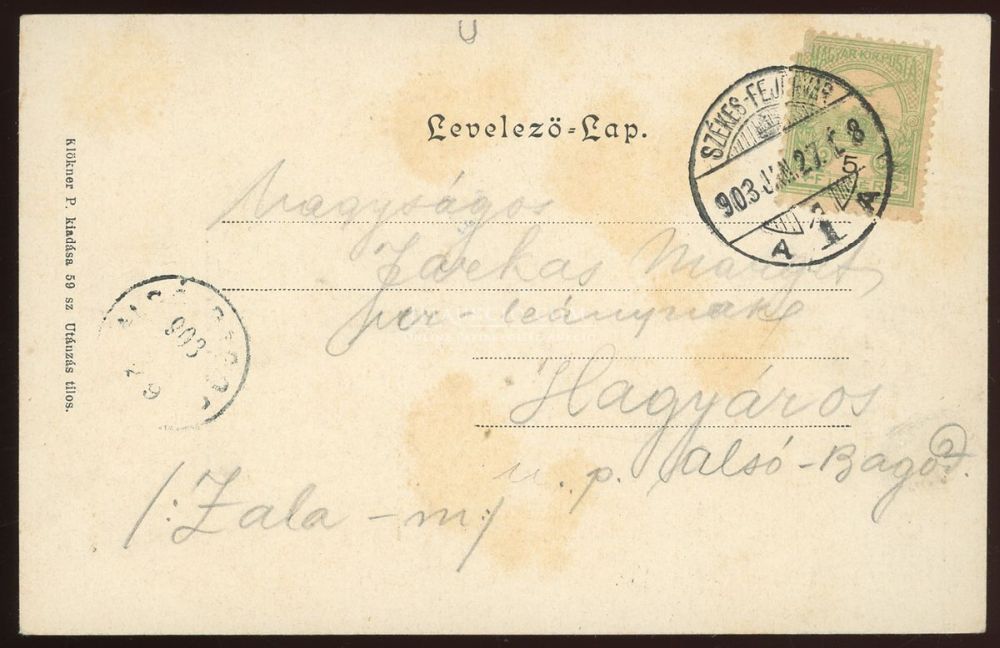 Levelező-Lap.
MAGYAR·KIR·POSTA
5
SZÉKES-FEJÉRVÁR
903 27. 8
A 1 A
Nagyságos
Farkas Margit
úr-leánynak
Hagyáros
u. p. Alsó-Bagod.
/: Zala-m :/
Klökner P. kiadása 59 sz Utánzás tilos.
903